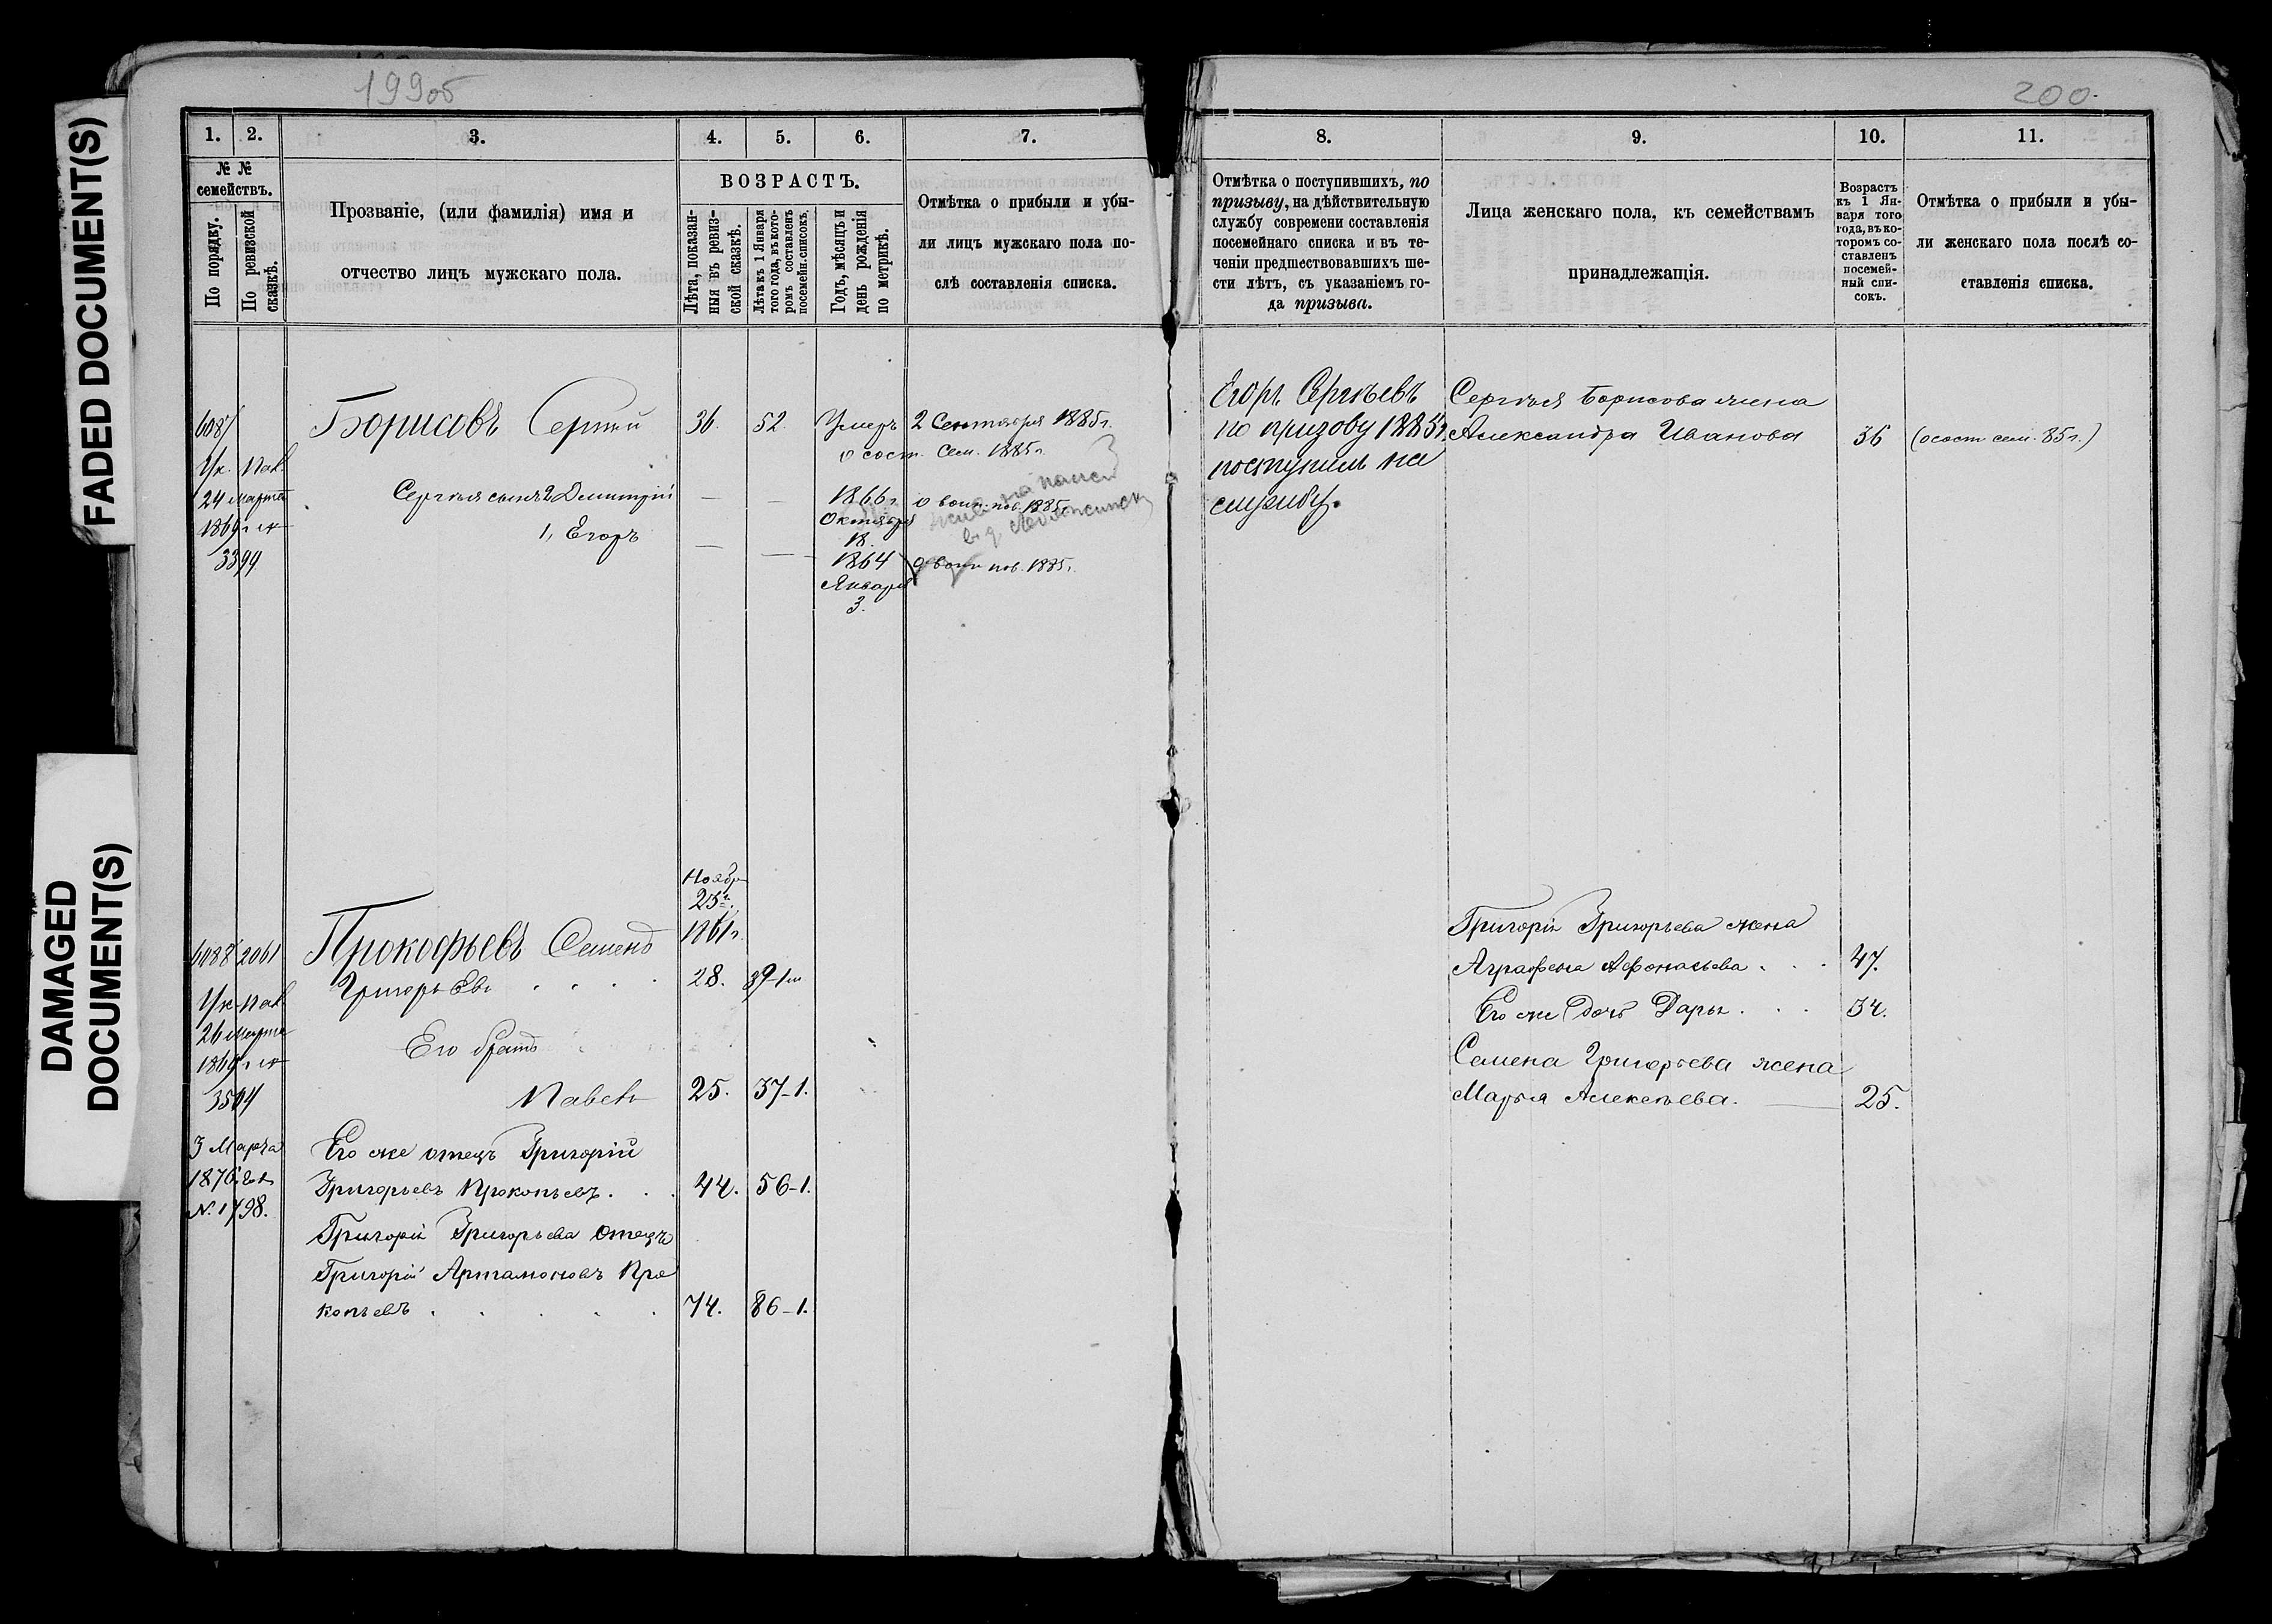 FADED DOCUMENT(S)
DAMAGED
DOCUMENT(S)
199об
1. 2. 3. 4. 5. 6. 7.
№ №
семействъ.
По порядку.
По ревизской
сказкѣ.
Прозваніе, (или фамилія) имя и
отчество лицъ мужскаго пола.
ВОЗРАСТЪ.
Лѣта, показан-
ныя въ ревиз-
ской сказкѣ.
Лѣта къ 1 Января
того года, въ кото-
ромъ составленъ
посемейн. списокъ.
Годъ, мѣсяцъ и
день рожденія
по метрикѣ.
Отмѣтка о прибыли и убы-
ли лицъ мужскаго пола по-
слѣ составленія списка.
6087
Ук. Пал.
24 марта
1869 г. №
3394
Борисовъ Сергѣй 36. 52. Умеръ 2 Сентября 1885 г.
о сост. сем. 1885 г.
Сергѣя сынъ 2, Дмитрій — — 1866 г. о воин. пов. 1885 г.
Октября
18.
1, Егоръ — — 1864 о воин. пов. 1885 г.
Января
3.
Ноябр
25
1861 г.
6088 2061 Прокофьевъ Семенъ
Григорьевъ 28. 39-1
Ук. Пал.
26 марта
1869 г. №
3504
Его братъ
Павелъ 25. 37-1.
3 Марта
1876
№ 1798.
Его же отецъ Григорій
Григорьевъ Прокопьевъ. 44. 56-1.
Григорія Григорьева отецъ
Григорій Артамоновъ Про
копьевъ 74. 86-1.
200.
8. 9. 10. 11.
Отмѣтка о поступившихъ, по
призыву, на дѣйствительную
службу современи составленія
посемейнаго списка и въ те-
ченіи предшествовавшихъ ше-
сти лѣтъ, съ указаніемъ го-
да призыва.
Лица женскаго пола, къ семействамъ
принадлежащія.
Возрастъ
къ 1 Ян-
варя того
года, въ ко-
торомъ со-
ставленъ
посемей-
ный спи-
сокъ.
Отмѣтка о прибыли и убы-
ли женскаго пола послѣ со-
ставленія списка.
Егоръ Сергѣевъ
по призову 1885 г.
поступилъ на
службу.
Сергѣя Борисова жена
Александра Иванова 36 (о сост. сем. 85 г.)
Григорія Григорьева жена
Аграфена Афонасьева 47.
Его же дочь Дарья 34.
Семена Григорьева жена
Марья Алексѣева. 25.